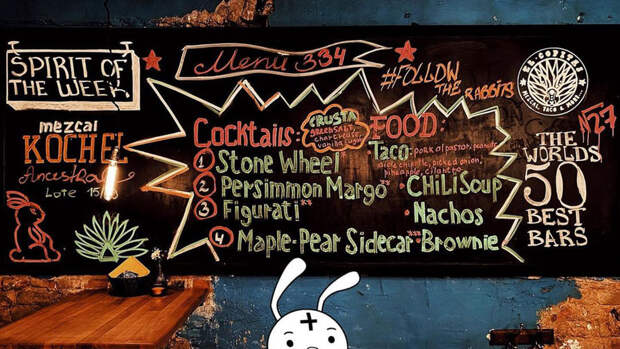 SPIRIT OF
THE WEEK
mezcal
KOCHEL
Ancestral
Menu 334
#FOLLOW
THE RABBITS
EL COPITAS
MEZCAL, TACO & MORE...
№27
THE WORLDS
50
BEST
BARS
Cocktails:
1 Stone Wheel
2 Persimmon Margo**
3 Figurati**
4 Maple-Pear Sidecar***
CRUSTA
BREAD SALT,
chartreuse,
vanilla
FOOD:
Taco: pork al pastor, peanuts,
chipotle, picked onion,
pineapple, cilantro
• CHILI SOUP
• Nachos
• Brownie